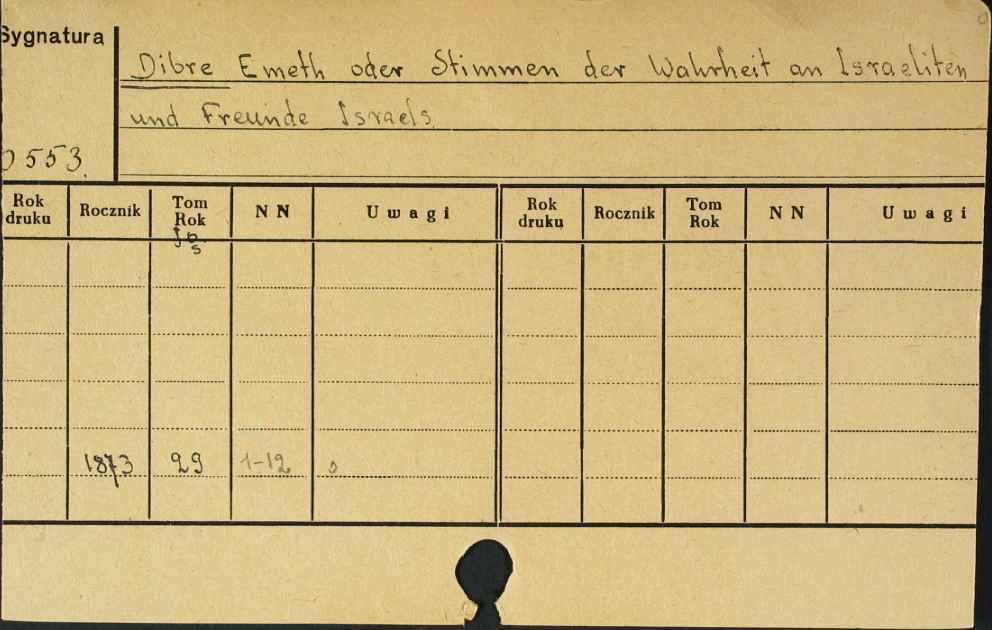 Sygnatura
Dibre Emeth oder Stimmen der Wahrheit an Israeliten
und Freunde Israels
553.
Rok druku Rocznik Tom Rok NN Uwagi Rok druku Rocznik Tom Rok NN Uwagi
1873 29 1-12